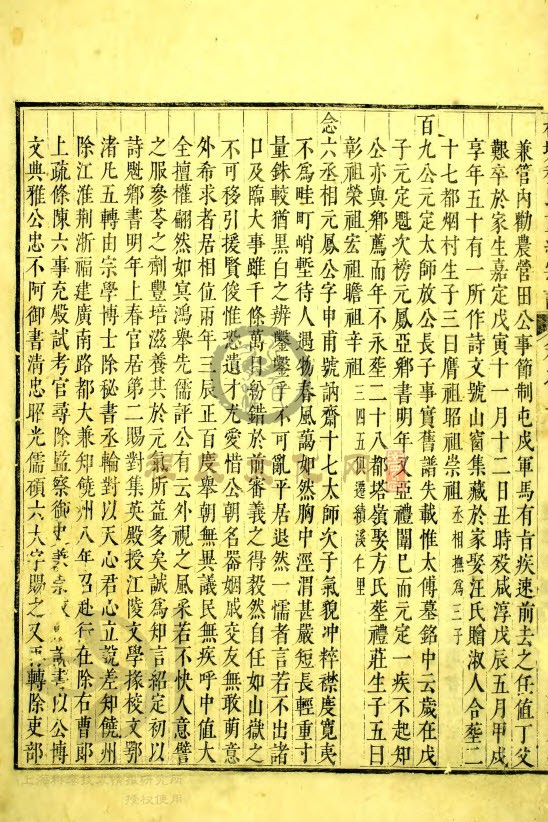 兼管內勸農營田公事節制屯戍軍馬有旨疾速前去之任值丁父
艱卒於家生嘉定戊寅十一月十二日丑時歿咸淳戊辰五月甲戌
享年五十有一所作詩文號山窗集藏於家娶汪氏贈淑人合塟二
十七都烟村生子三曰膺祖昭祖崇祖丞相撫為三子
百九公元定太師放公長子事實舊譜失載惟太傅墓銘中云歲在戌
子元定魁次榜元鳳亞鄉書明年又亞禮闈已而元定一疾不起知
公亦與鄉薦而年不永塟二十八都塔嶺娶方氏塟禮莊生子五曰
彰祖榮祖宏祖瞻祖辛祖三四五俱遷績溪仁里
念六丞相元鳳公字申甫號訥齋十七太師次子氣貌冲粹襟度寬夷
不為畦町峭塹待人遇物春風藹如然胸中涇渭甚嚴短長輕重寸
量銖較猶黑白之辨鑿鑿乎不可亂平居退然一懦者言若不出諸
口及臨大事雖千條萬目紛錯於前審義之得毅然自任如山嶽之
不可移引援賢俊惟恐遺才尤愛惜公朝名器姻戚交友無敢萌意
外希求者居相位兩年三辰正百度舉朝無異議民無疾呼中值大
全擅權翩然如冥鴻舉先儒評公有云外視之風采若不快人意譬
之服參苓之劑豐培滋養其於元氣所益多矣誠為知言紹定初以
詩魁鄉書明年上春官居第二賜對集英殿授江陵文學掾校文鄂
渚凡五轉由宗學博士除秘書丞輪對以天心君心立說差知饒州
除江淮荆浙福建廣南路都大兼知饒州八年召赴行在除右曹郎
上疏條陳六事充殿試考官尋除監察御史兼崇政說書以公博
文典雅公忠不阿御書清忠昭光儒碩六大字賜之又轉除吏部
上海科学技术情报研究所
授权使用